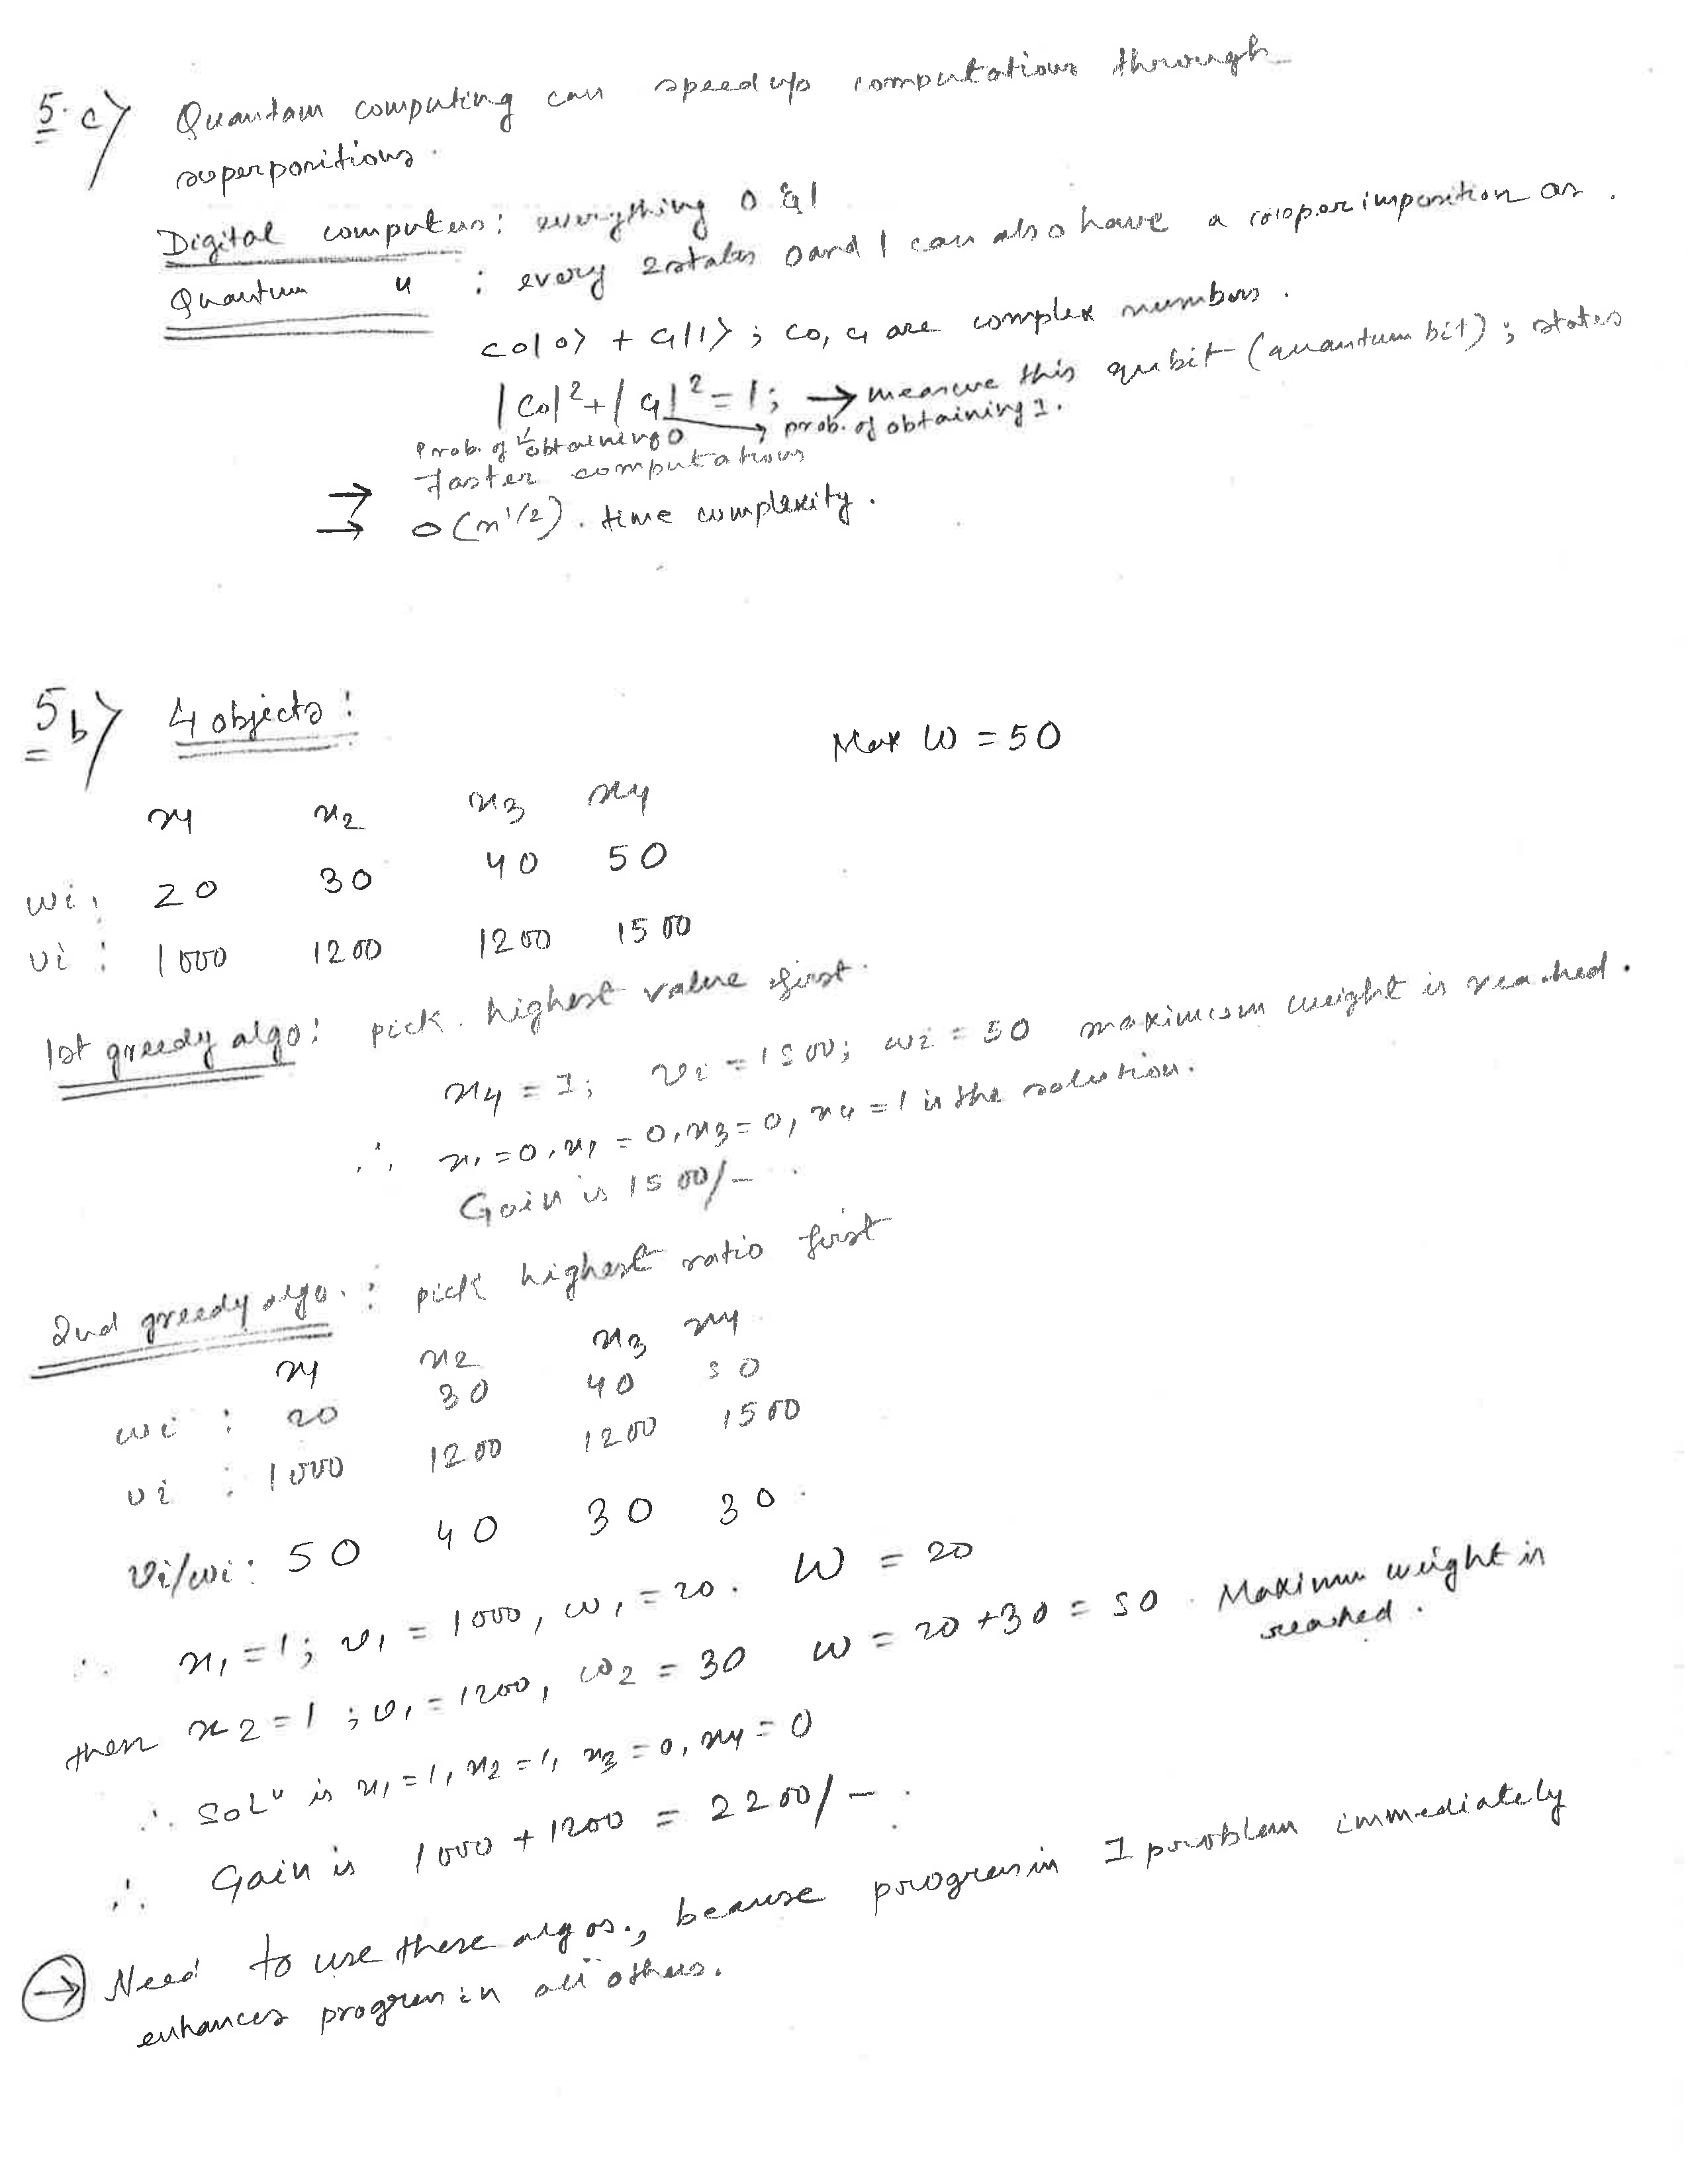 5.c) Quantam computing can speedup computations through
superpositions.
Digital computers: everything 0 & 1
Quantum " : every 2 states 0 and 1 can also have a superimposition as.
c0|0> + c1|1> ; c0, c1 are complex numbers.
|c0|² + |c1|² = 1; → measure this qubit (quantum bit) ; states
prob. of obtaining 0 → prob. of obtaining 1.
→ Faster computations
→ O(n^1/2). time complexity.
5b) 4 objects: Max W = 50
x1 x2 x3 x4
wi: 20 30 40 50
vi: 1000 1200 1200 1500
1st greedy algo: pick highest value first.
x4 = 1; vi = 1500; wi = 50 maximum weight is reached.
∴ x1 = 0, x2 = 0, x3 = 0, x4 = 1 is the solution.
Gain is 1500/-
2nd greedy algo.: pick highest ratio first
x1 x2 x3 x4
wi : 20 30 40 50
vi : 1000 1200 1200 1500
vi/wi: 50 40 30 30.
∴ x1 = 1; v1 = 1000, w1 = 20. W = 20
then x2 = 1 ; v1 = 1200, w2 = 30 W = 20 + 30 = 50. Maximum weight is
reached.
∴ Solⁿ is x1 = 1, x2 = 1, x3 = 0, x4 = 0
∴ Gain is 1000 + 1200 = 2200/-.
→ Need to use these algos., because progress in 1 problem immediately
enhances progress in all others.